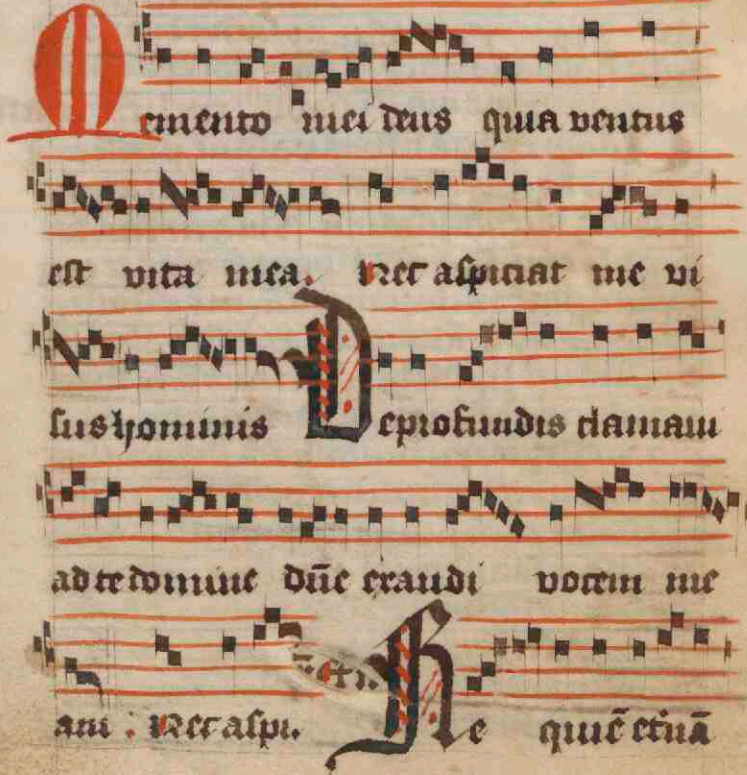 Memento mei deus quia ventus
est vita mea. Nec aspiciat me vi
sus hominis De profundis clamavi
ad te domine dñe exaudi vocem me
am. Nec aspi. Re quiē etñā